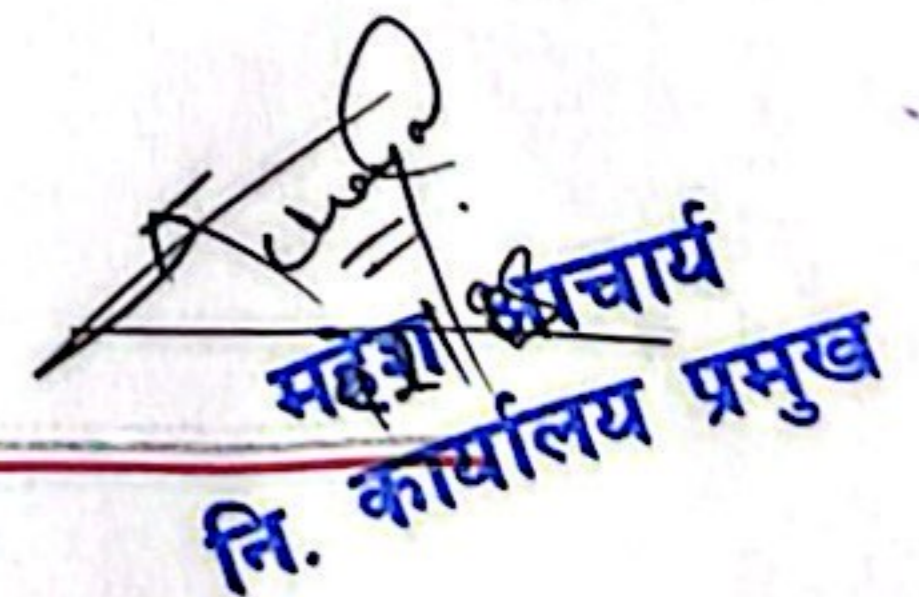 महेश आचार्य
नि. कार्यालय प्रमुख